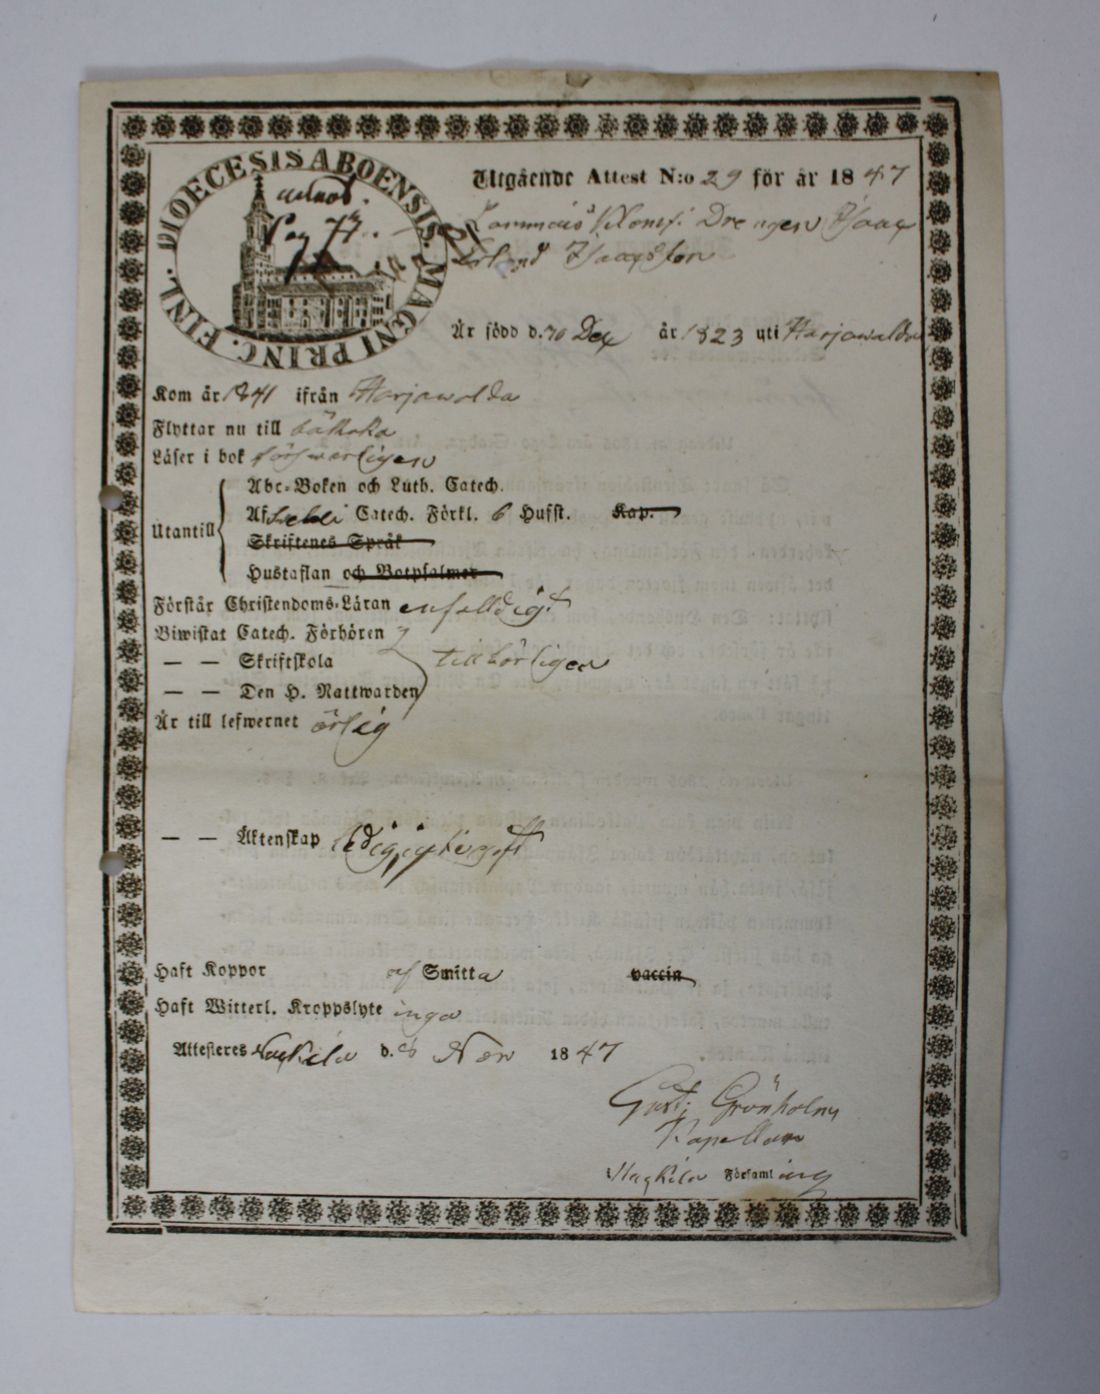 DIOECESIS ABOENSIS. MAGNI PRINC. FINL.
Pag 77.
Utgående Attest N:o 29 för år 1847
Drengen Isaac
Erland Isaacsson
Är född d. 10 Dec år 1823 uti Harjawalda
Kom år 1841 ifrån Harjawalda
Flyttar nu till
Läser i bok förswarligen
Utantill
Abc-Boken och Luth. Catech.
Af Catech. Förkl. 6 Hufst. Kap.
Skriftenes Språk
Hustaflan och Botpsalmer
Förstår Christendoms-Läran enfalldigt
Biwistat Catech. Förhören
— — Skriftskola tillbörligen
— — Den H. Nattwarden
Är till lefwernet ärlig
— — Äktenskap ledig
Haft Koppor af Smitta vaccin
Haft Witterl. Kroppslyte inga
Attesteres Nackila d. 6 Nov 1847
Gust: Grönholm
Kapellan
Nackila Församling